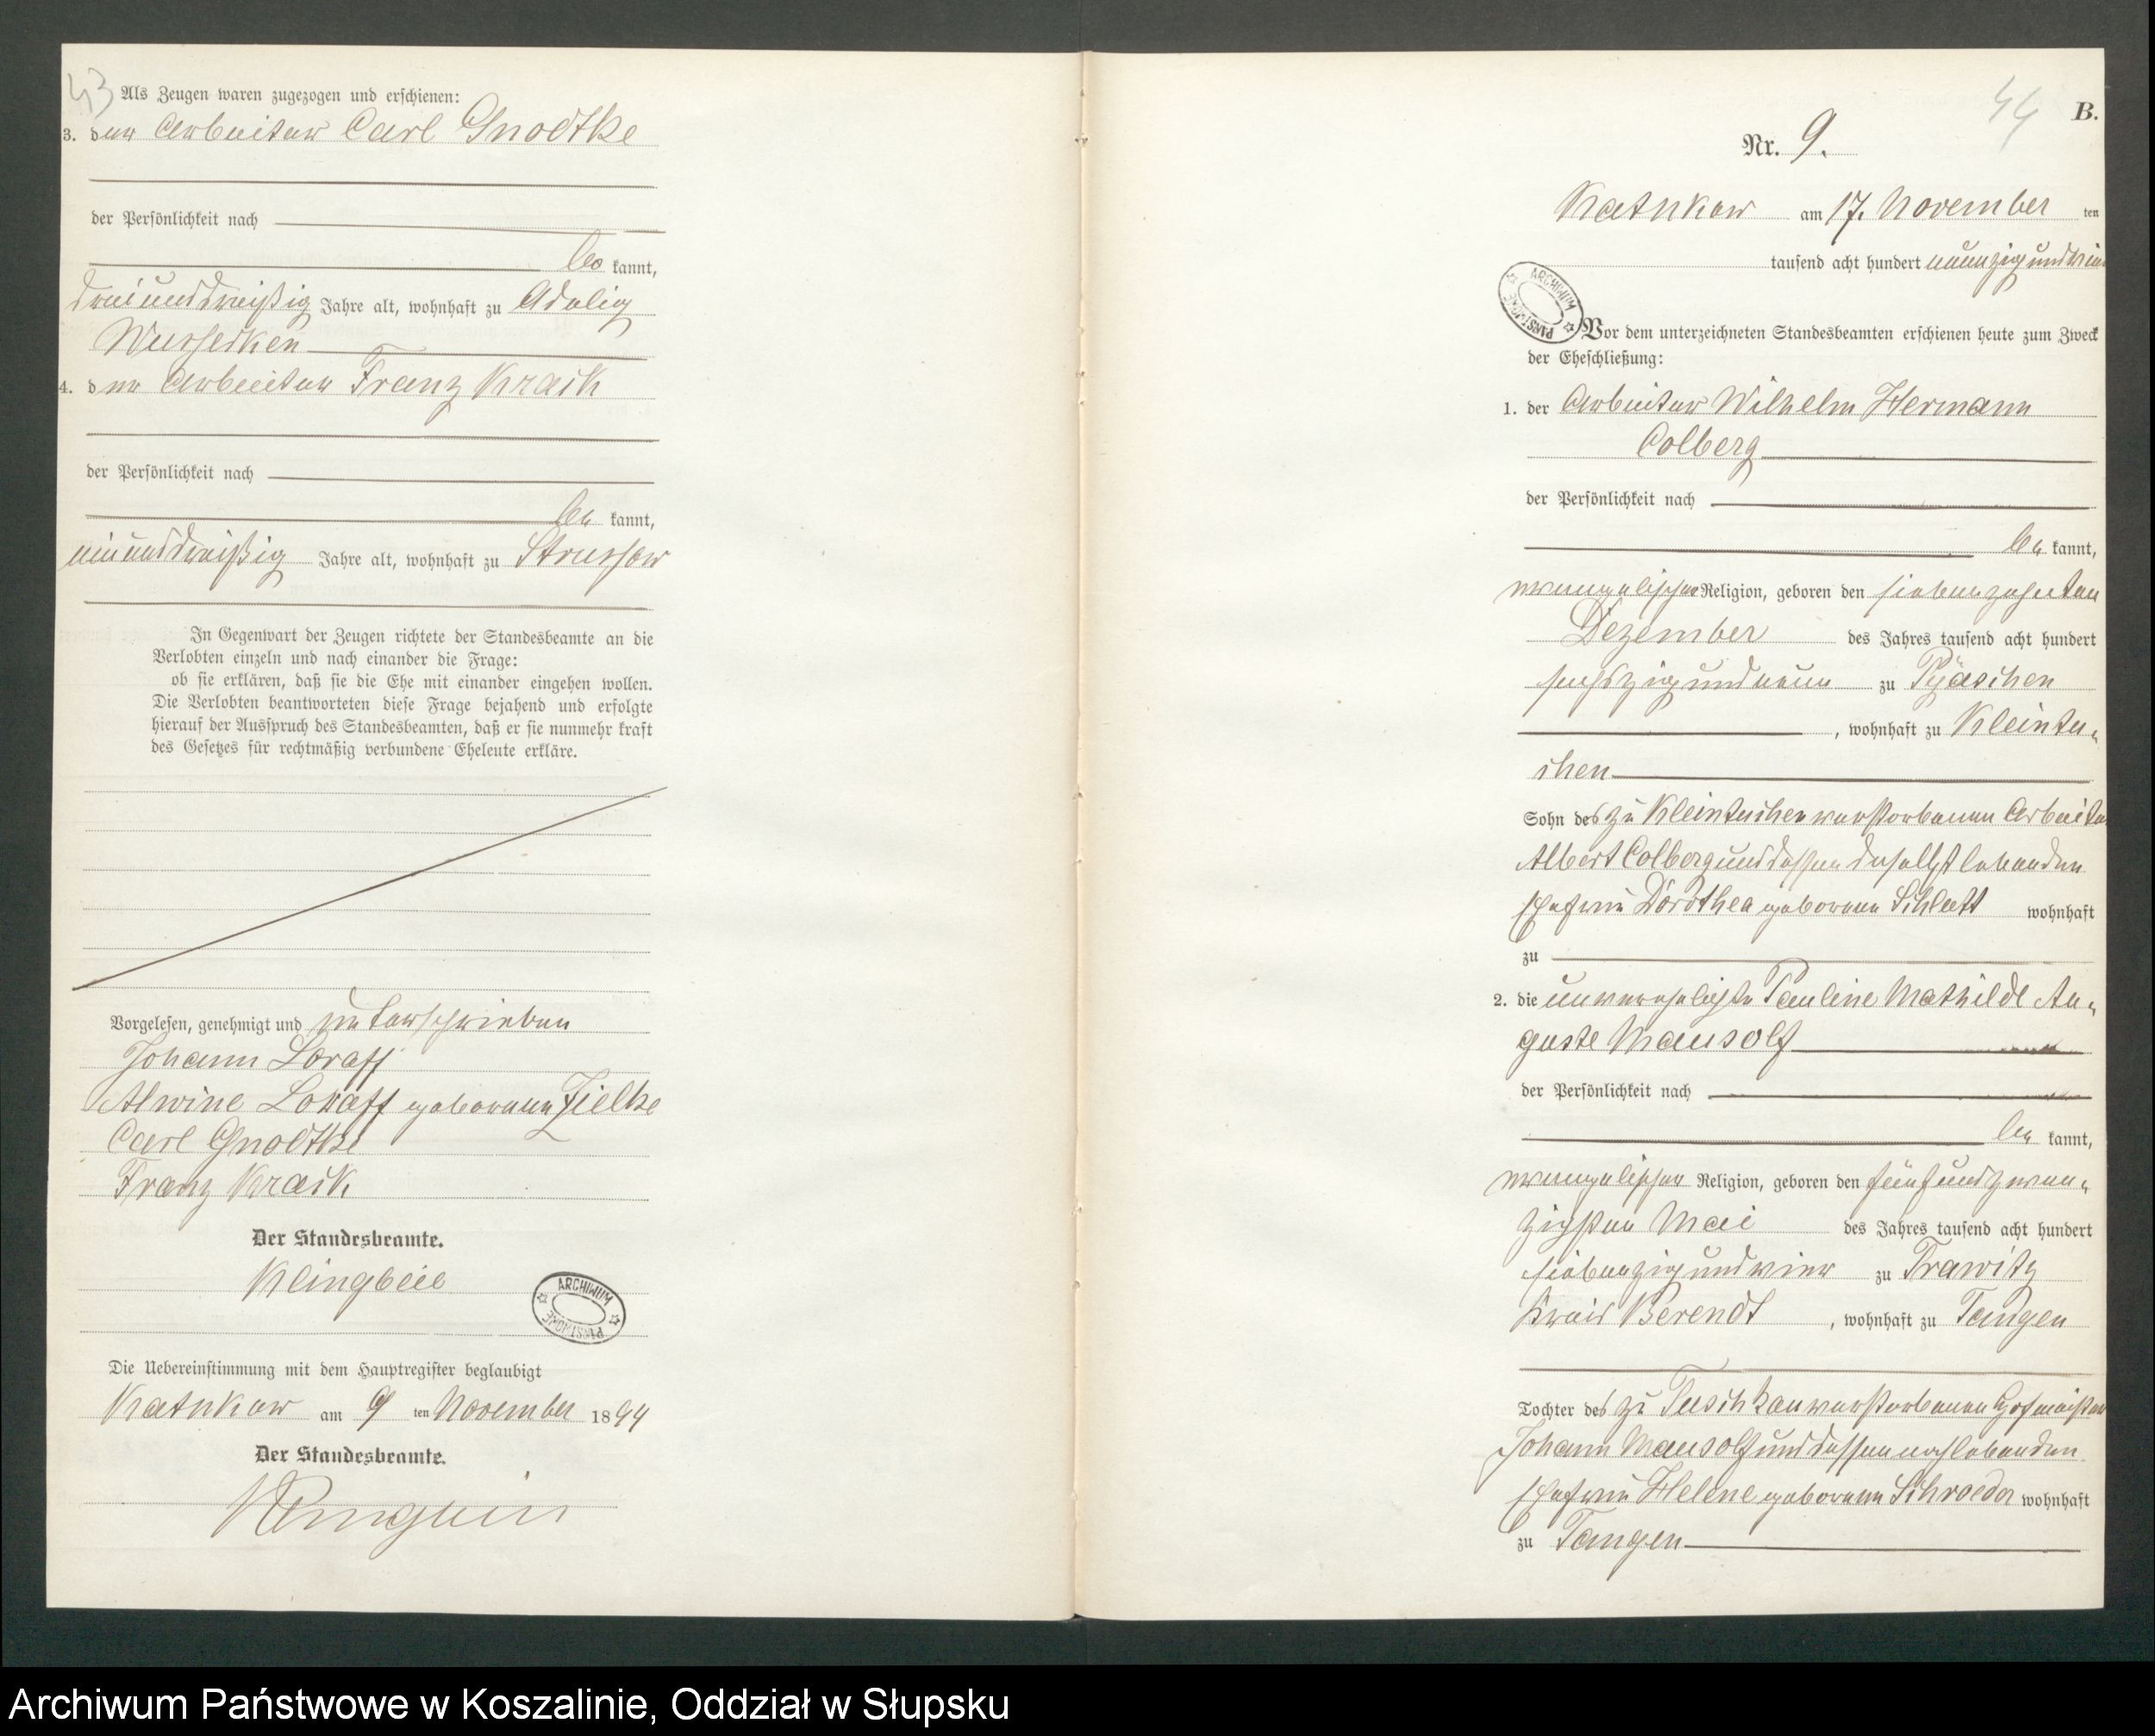 43
Als Zeugen waren zugezogen und erschienen:
3. der Arbeiter Carl Gnodtke
der Persönlichkeit nach
be kannt,
dreiunddreißig Jahre alt, wohnhaft zu Adelig
Wusseken
4. der Arbeiter Franz Krack
der Persönlichkeit nach
be kannt,
einunddreißig Jahre alt, wohnhaft zu Strussow
In Gegenwart der Zeugen richtete der Standesbeamte an die
Verlobten einzeln und nach einander die Frage:
ob sie erklären, daß sie die Ehe mit einander eingehen wollen.
Die Verlobten beantworteten diese Frage bejahend und erfolgte
hierauf der Ausspruch des Standesbeamten, daß er sie nunmehr kraft
des Gesetzes für rechtmäßig verbundene Eheleute erkläre.
Vorgelesen, genehmigt und unterschrieben
Johann
Alwine geborene Zielke
Carl Gnodtke
Franz Krack
Der Standesbeamte.
Klingbeil
ARCHIWUM PAŃSTWOWE
Die Uebereinstimmung mit dem Hauptregister beglaubigt
Kathkow am 9 ten November 1894
Der Standesbeamte.
44
B.
Nr. 9.
Kathkow am 17. November ten
tausend acht hundert neunzig und vier
ARCHIWUM PAŃSTWOWE
Vor dem unterzeichneten Standesbeamten erschienen heute zum Zweck
der Eheschließung:
1. der Arbeiter Wilhelm Hermann
Colberg
der Persönlichkeit nach
be kannt,
evangelischer Religion, geboren den siebenzehnten
Dezember des Jahres tausend acht hundert
sechszig und neun zu Pyaschen
, wohnhaft zu Kleintu-
chen
Sohn des zu Kleintuchen verstorbenen Arbeiter
Albert Colberg und dessen daselbst lebenden
Ehefrau Dorothea geborene Schlatt wohnhaft
zu
2. die unverehelichte Pauline Mathilde Au-
guste Mausolf
der Persönlichkeit nach
be kannt,
evangelischer Religion, geboren den fünfundzwan-
zigsten Mai des Jahres tausend acht hundert
siebenzig und vier zu Trawitz
Kreis Berendt, wohnhaft zu Tangen
Tochter des zu Tuschkau verstorbenen Hofmeister
Johann Mausolf und dessen noch lebenden
Ehefrau Helene geborene Schroeder wohnhaft
zu Tangen
Archiwum Państwowe w Koszalinie, Oddział w Słupsku